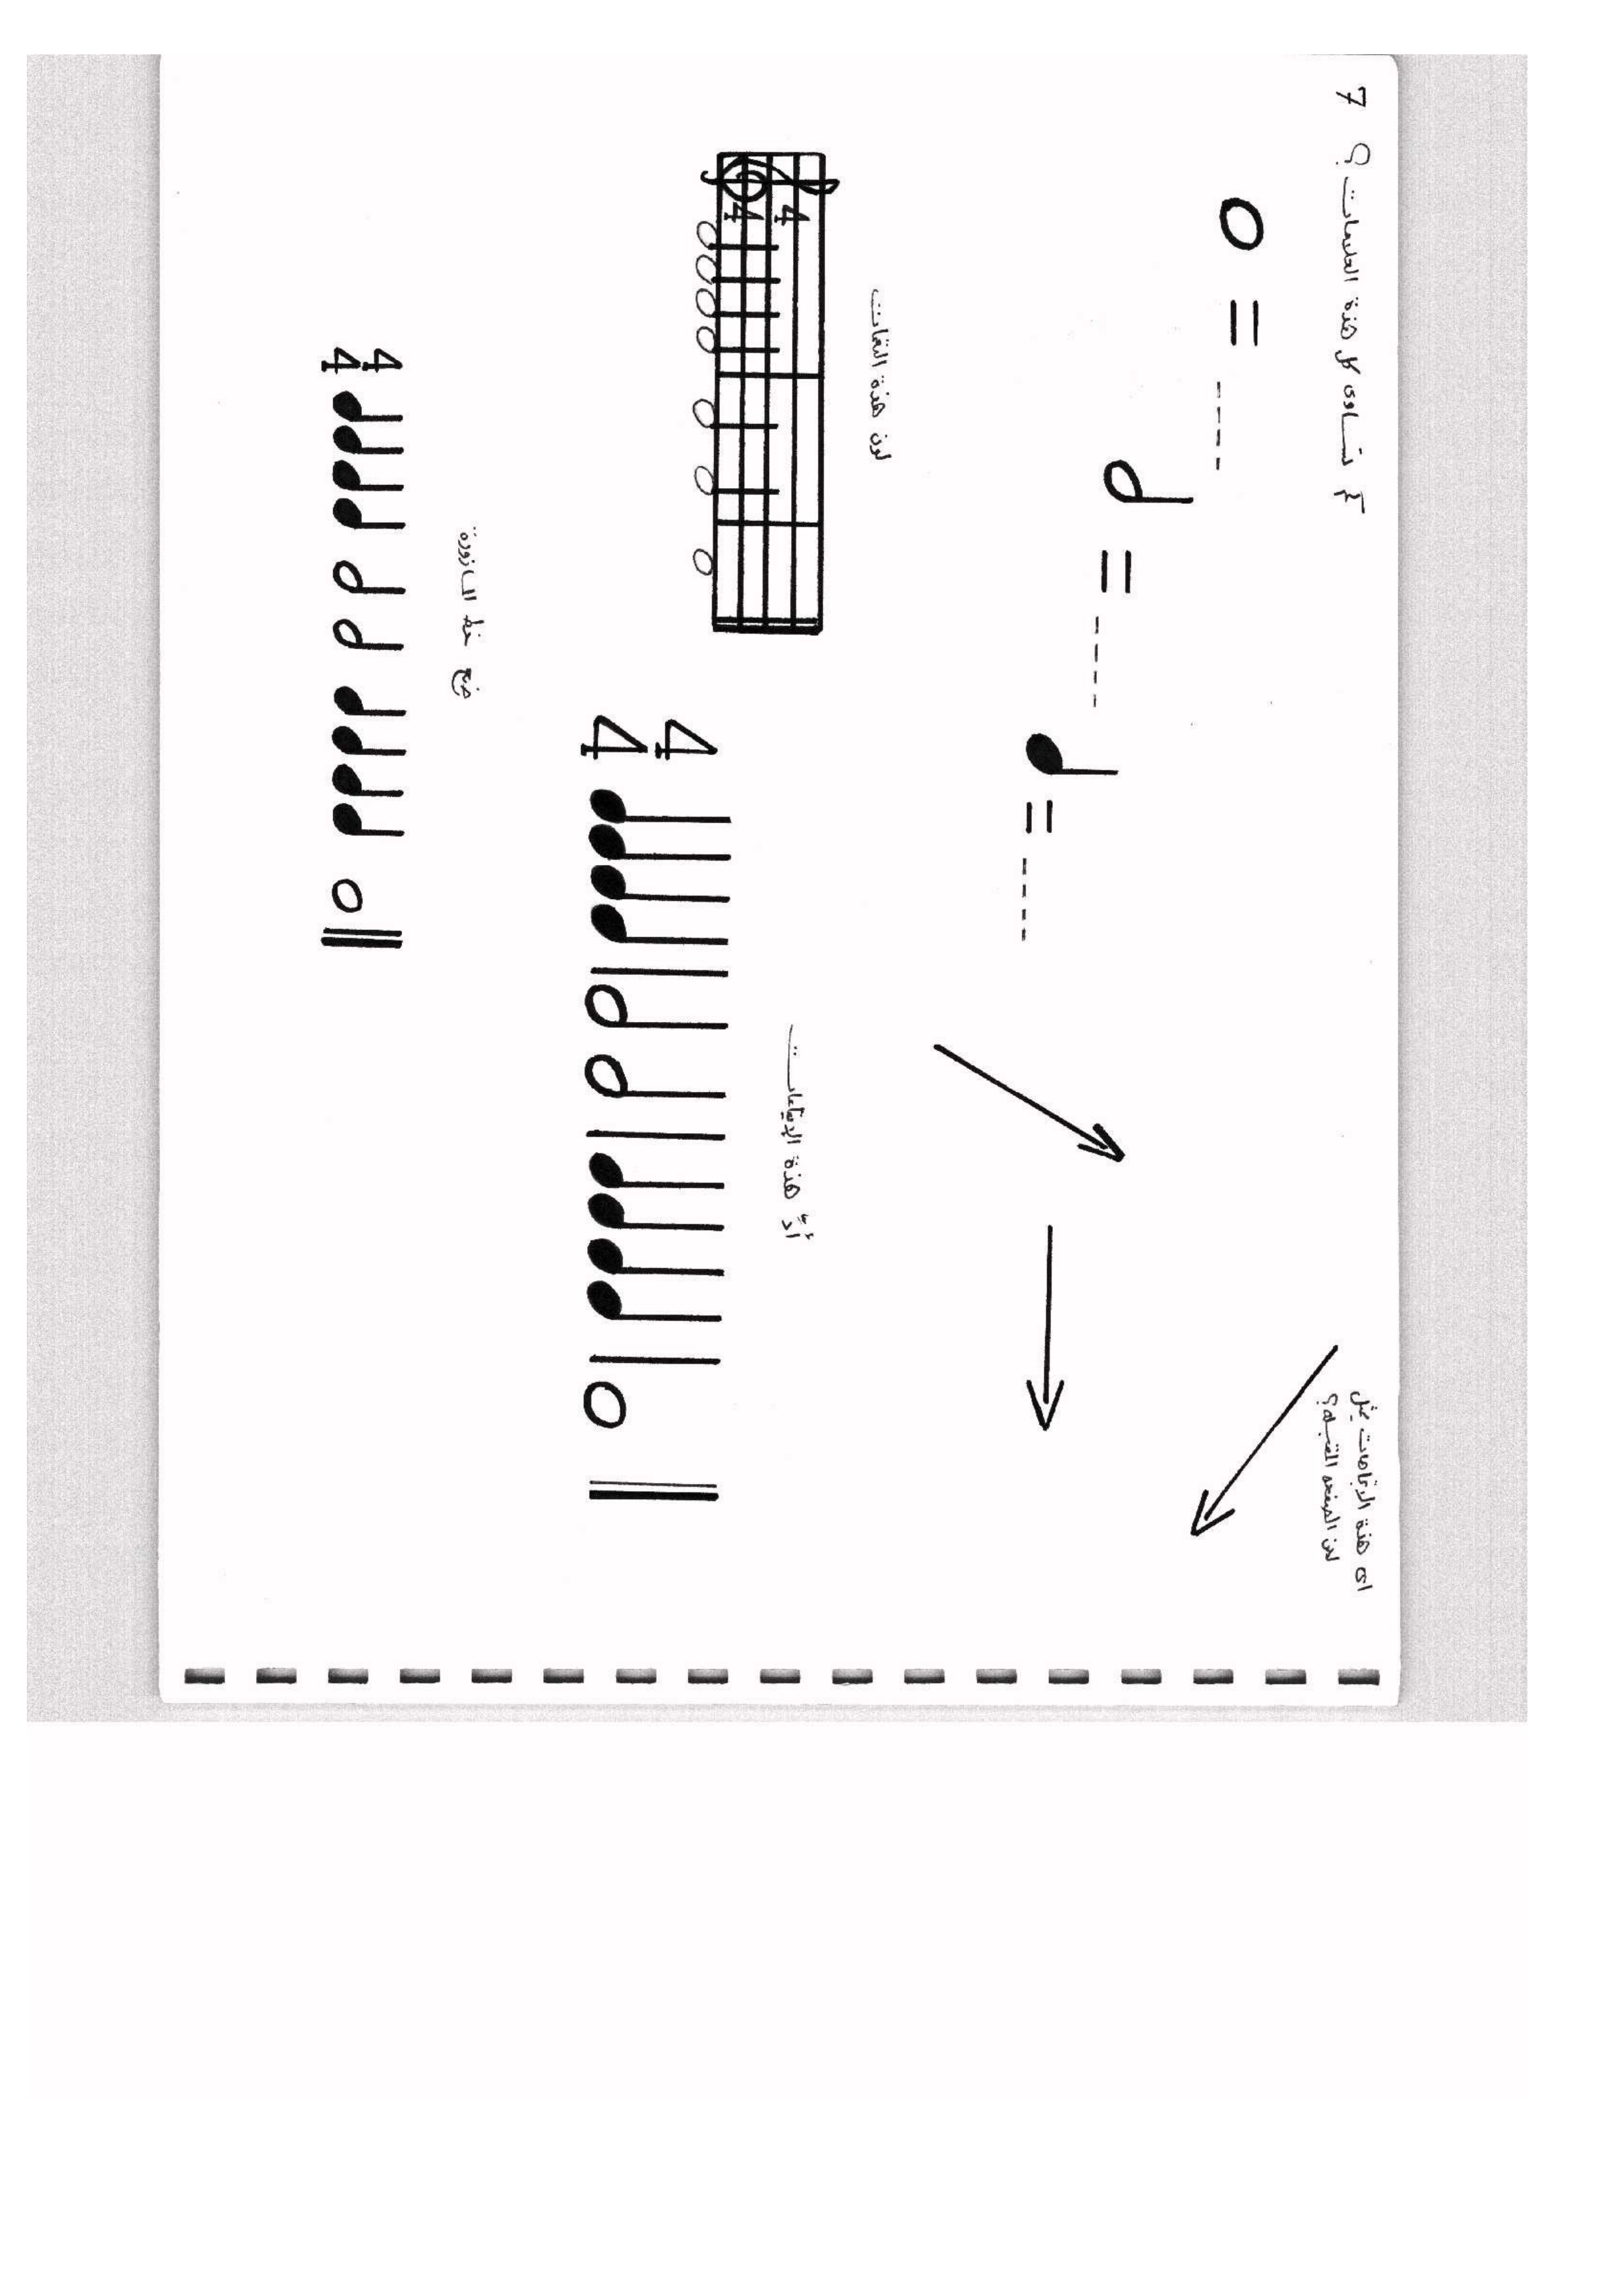 7
كم تساوى كل هذة العلامات ؟
اى هذة الإتجاهات يمثل
لحن الصفحه المقبله؟
لون هذة النغمات
4
4
أدِّ هذة الإيقاعات
4
4
ضع خط المازورة
4
4